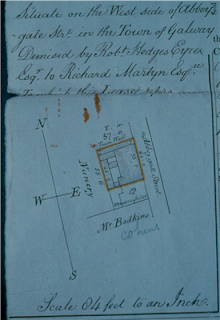 Situate on the West side of Abbey
gate Str.t in the Town of Galway
Demised by Rob.t Hedges Eyre
Esq.r to Richard Martyn Esq.re
N
57
Nunery
Abbeygate Street
W
E
12
Mr. Bodkins
S
Scale 64 feet to an Inch.